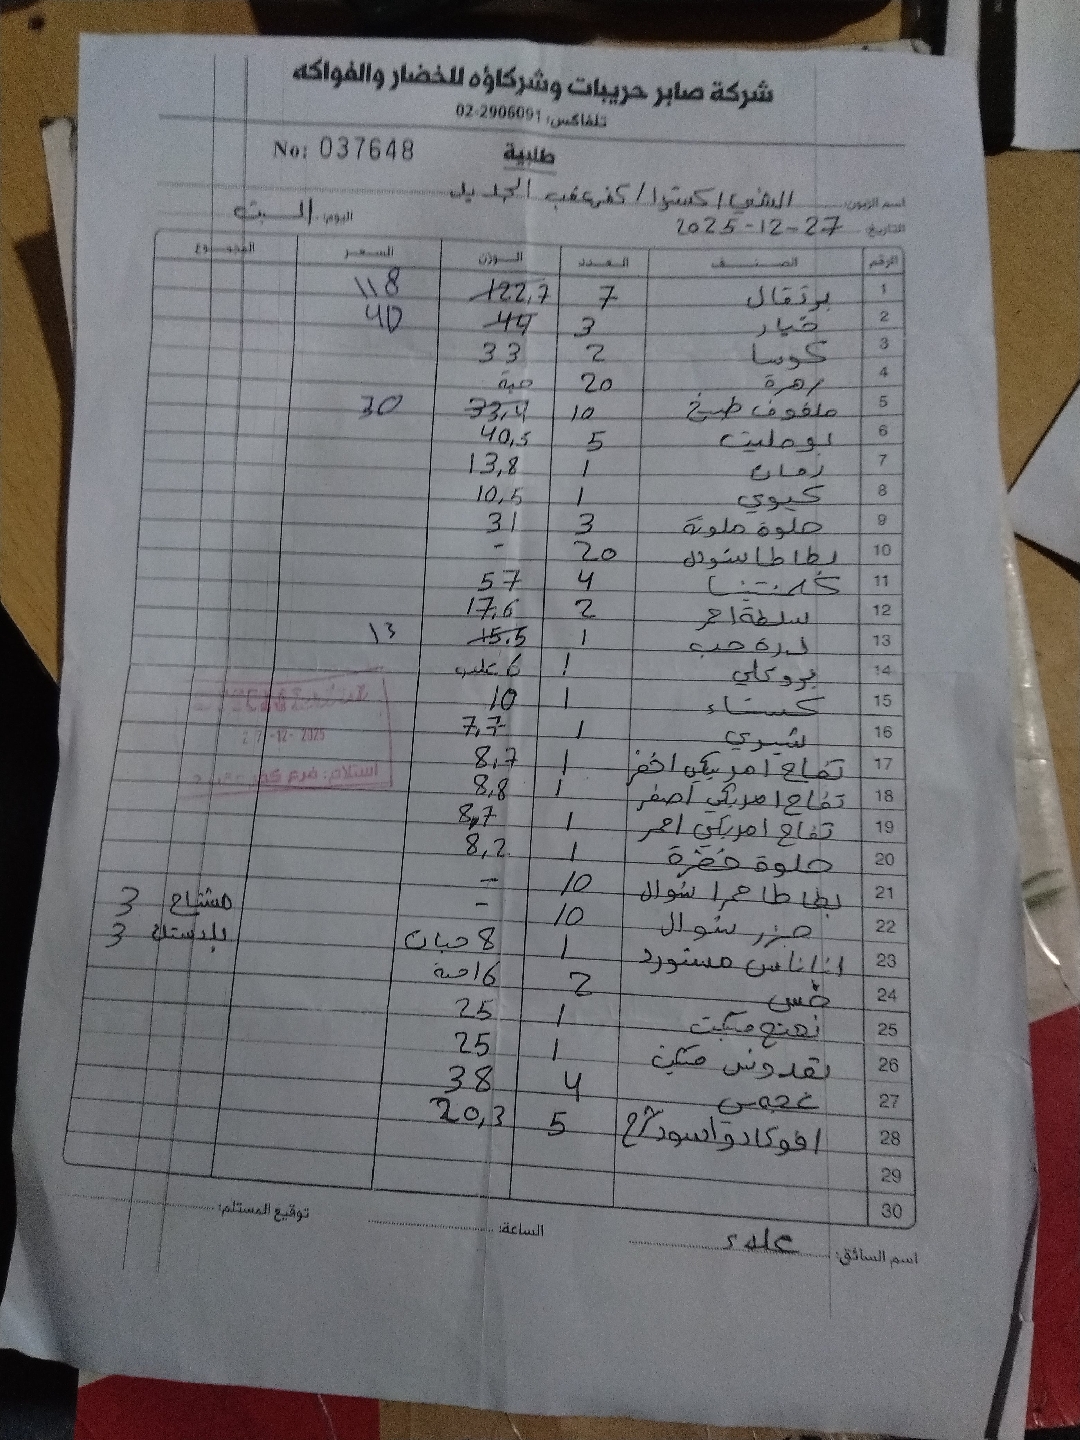 شركة صابر حريبات وشركاؤه للخضار والفواكه
تلفاكس: 02-2906091
طلبية
No: 037648
اسم الزبون: الشني اكسترا / كفر عقب الجديد
التاريخ: 27-12-2025 اليوم: السبت
الرقم الصنف العدد الوزن السعر المجموع
1 برتقال 7 122,7 118
2 خيار 3 44 40
3 كوسا 2 33
4 زهرة 20 حبة
5 ملفوف طبخ 10 33,4 30
6 بومليت 5 40,5
7 رمان 1 13,8
8 كيوي 1 10,5
9 حلوة ملونة 3 31
10 بطاطا شوال 20 -
11 كلمنتينا 4 57
12 سلطة احمر 2 17,6
13 ذرة حب 1 15.5 13
14 بروكلي 1 6 علب
15 كستناء 1 10
16 شيري 1 7,7
17 تفاح امريكي اخضر 1 8,7
18 تفاح امريكي اصفر 1 8,8
19 تفاح امريكي احمر 1 8,7
20 حلوة خضرة 1 8,2
21 بطاطا حمرا شوال 10 -
22 جزر شوال 10 - مشتاح 3
23 اناناس مستورد 1 8 حبات بلاستك 3
24 خس 2 16 حبة
25 نعنع مكبت 1 25
26 بقدونس مكبت 1 25
27 عجمي 4 38
28 افوكادو اسود 5 20,3
29
30
27-12-2025
استلام: فرع كفر عقب
اسم السائق: علاء الساعة: توقيع المستلم: